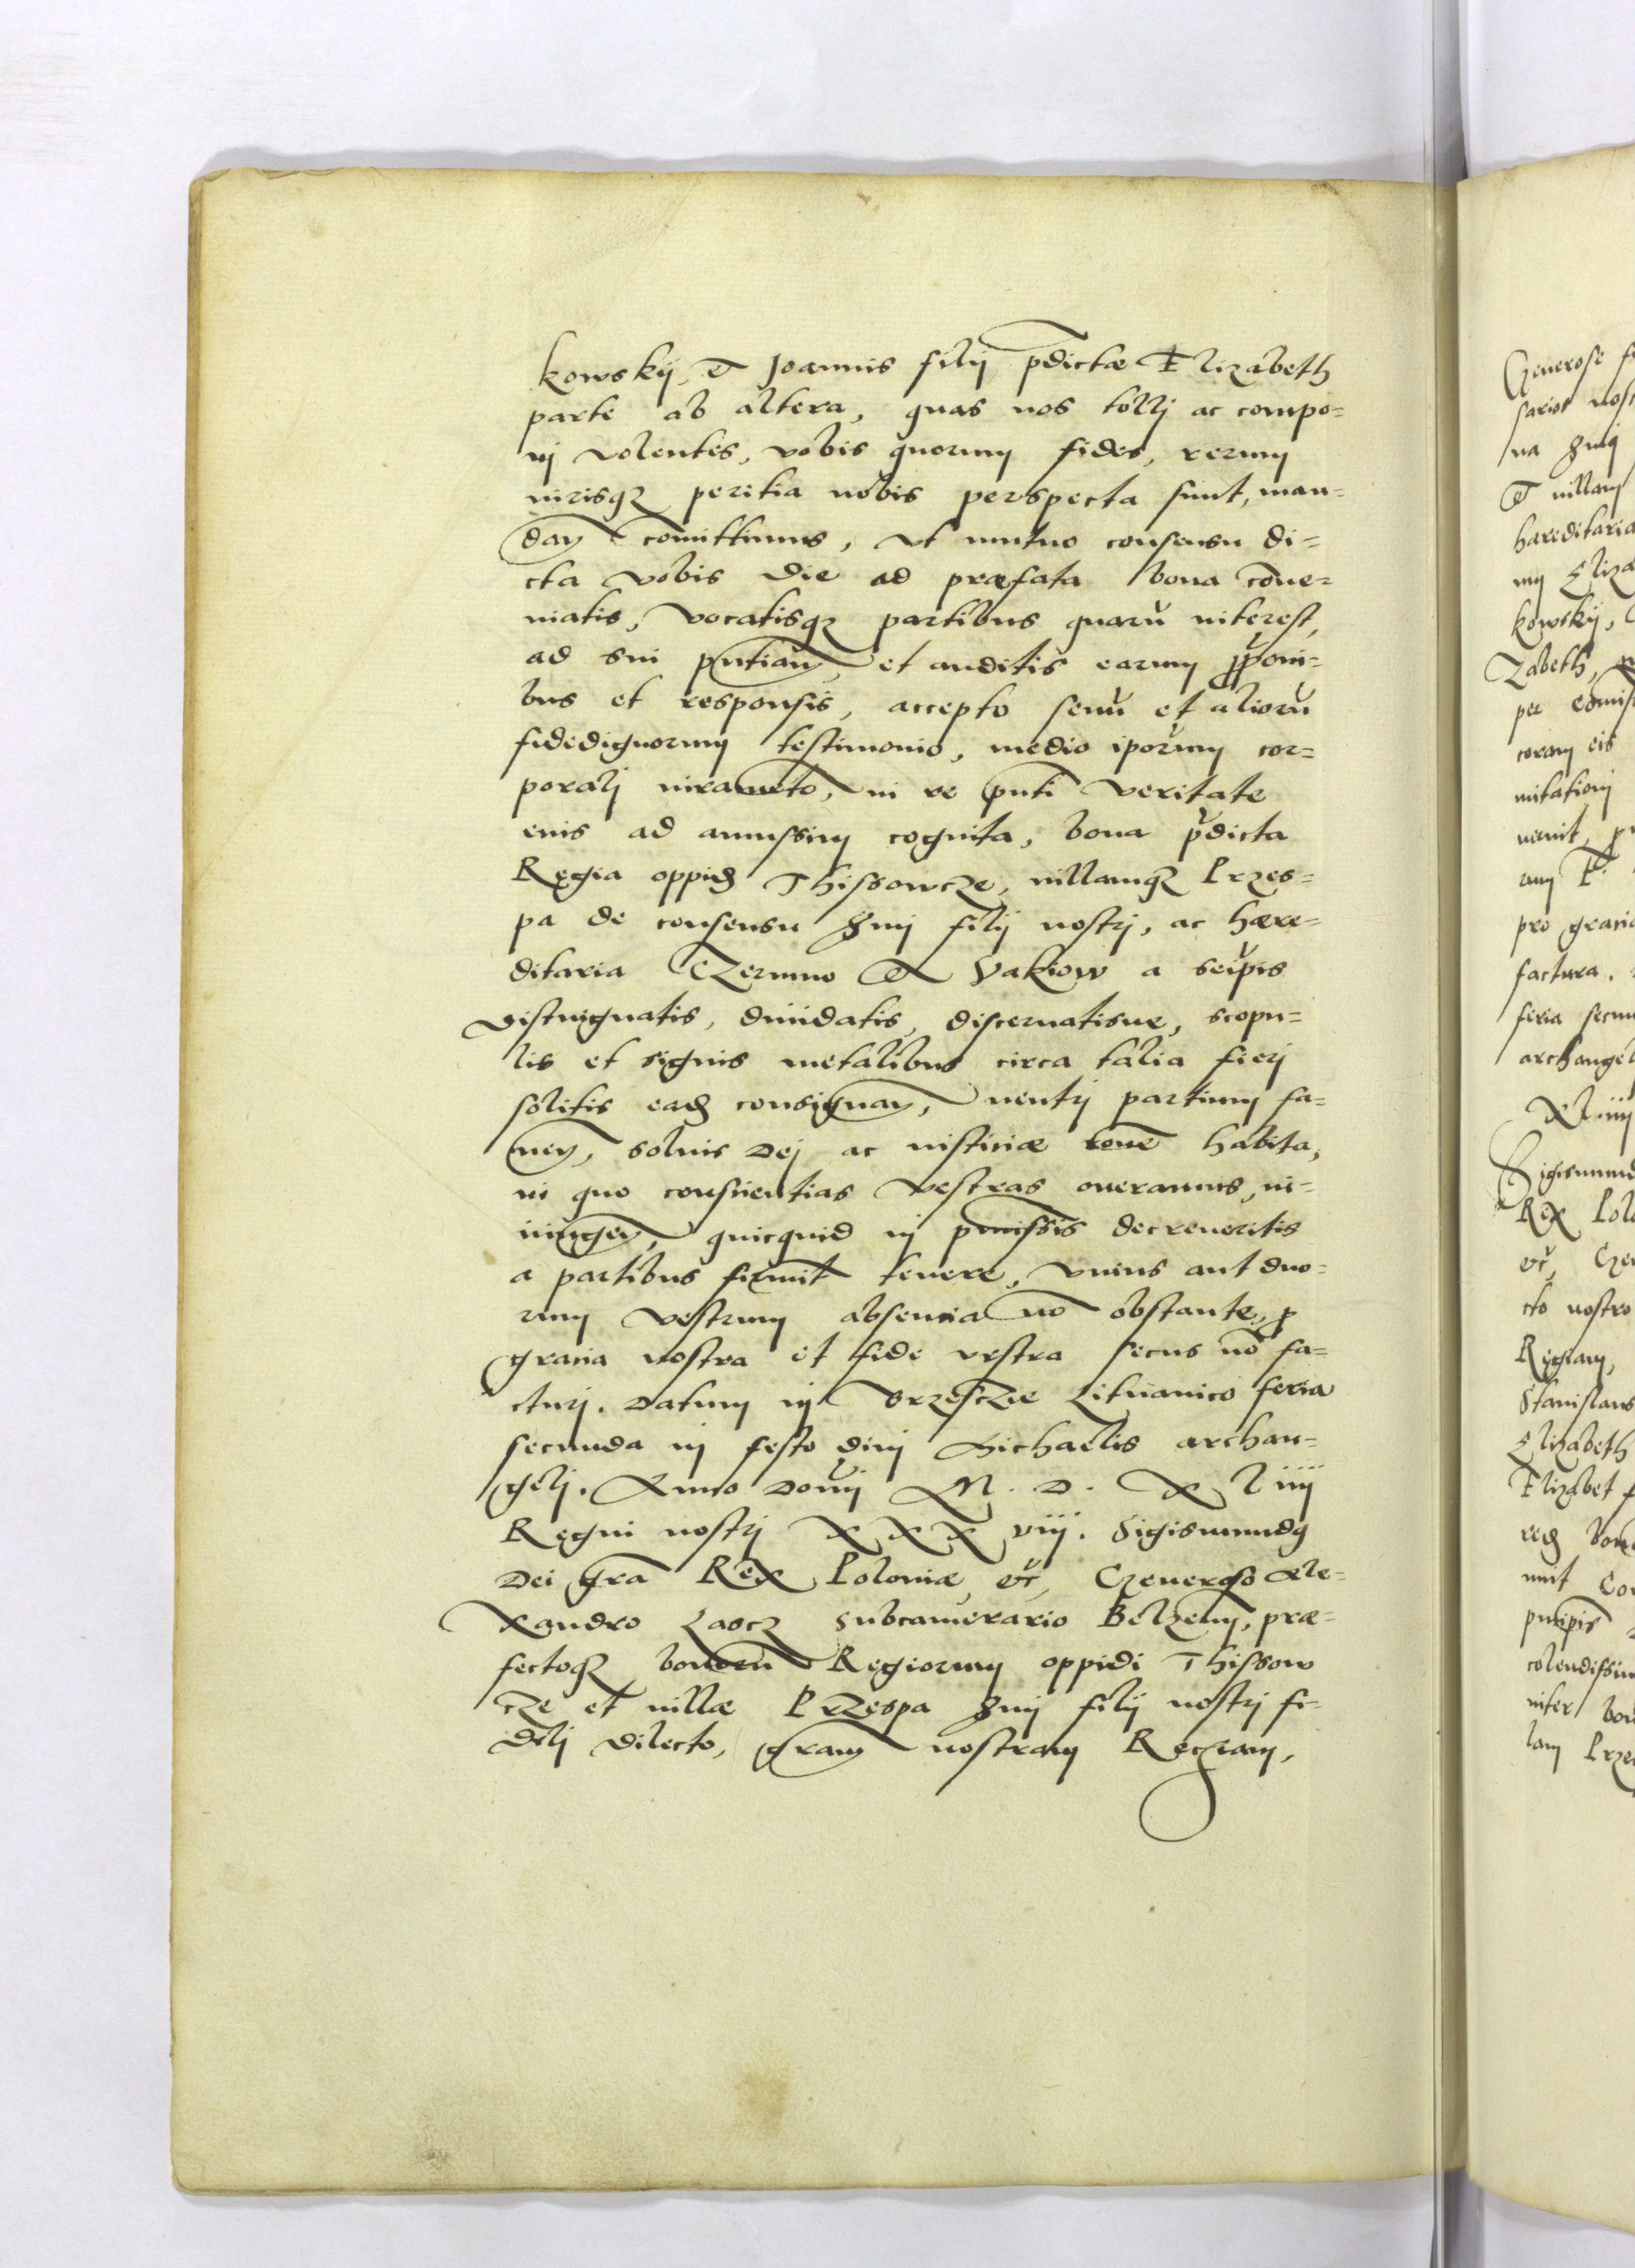 kowskij, et Joannis filij p̃dictæ Elizabeth
parte ab altera, quas nos tollj ac compo=
nj volentes, vobis quorum fides, rerum
iurisq3 peritia nobis perspecta sunt, man=
dam̃ com̃ittimus, vt mutuo consensu di=
cta vobis die ad præfata bona cõue=
niatis, vocatisq3 partibus quarũ interest,
ad sui pñtiam, et auditis earum ꝓponi=
bus et responsis, accepto senũ et aliorũ
fidedignorum testimonio, medio ip̃orum cor=
poralj iuramẽto, in re pñti veritate
eius ad amussim cognita, bona p̃dicta
Regia oppid Thissowcze, uillamq3 Przes=
pa de consensu Smj filij nostrj, ac hære=
ditaria Czermno et Vakiow a seip̃is
distinguatis, diuidatis, discernatisue, scopu=
lis et signis metalibus circa talia fierj
solitis ead consignam̃, neutrj partium fa=
uen̄, solius Dej ac iustitiæ rõne habita,
in quo conscientias vestras oneramus, in=
iungen̄, quicquid in p̃missis decreueritis
a partibus firmit̃ tenere, vnius aut duo=
rum vestrum absencia nõ obstante, ꝓ
gracia nostra et fide vestra secus nõ fa=
cturj. Datum in Brzesczie Lituanico feria
secunda in festo diuj Michaelis archan=
gelj. Anno Domj M. D. X L iiij
Regni nostrj X X X viij. Sigismundq
Dei gr̃a Rex Poloniæ etc̃, Generoso Ale=
xandro Lascz Subcamerario Belzeñ, præ=
fectoq3 bonorũ Regiorum oppidi Thissow
cze et uillæ Przespa Smj filij nostrj fi=
delj dilecto, gr̃am nostram Regiam,
Generose
sariot nost
na Smj
et uillam
hæreditaria
kowskij,
zabeth,
per com̃is
coram eis
pro gracia
factura.
feria secun
archangel
XLiiij
Sigismund
Rex Polo
etc̃, Gen
cto nostro
Regiam,
Stanislaus
Elizabeth
Elizabet f
colendissim
inter bon
lam Przes